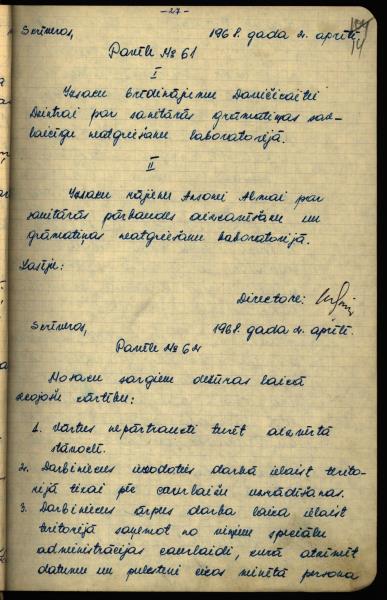 - 27 -
Scīveros, 1968. gada 2. aprīlī.
Pavēle № 61
I
Izsacu brīdinājumu
Dzintrai par sanitārās grāmatiņas sav-
laicīgu neatgriešanu laboratorijā.
II
Izsacu rājienu Ansonei Almai par
sanitārās pārbaudes aizcavēšanu un
grāmatiņas neatgriešanu laboratorijā.
Lasīju:
Directore:
Scīveros, 1968. gada 2. aprīlī.
Pavēle № 62
Nosacu sargiem dežūras laicā
secojošu cārtību:
1. Vārtus nepārtraucti turēt aizvērtā
stāvoclī.
2. Darbiniecus izejodotes darbā ielaist terito-
rijā ticai pēc caurlaižu uzrādīšanas.
3. Darbiniecus ārpus darba laica ielaist
teritorijā saņemot no viņiem speciālu
administrācijas caurlaidi, curā atzīmēt
datumu un pulcsteni cicos minētā persona